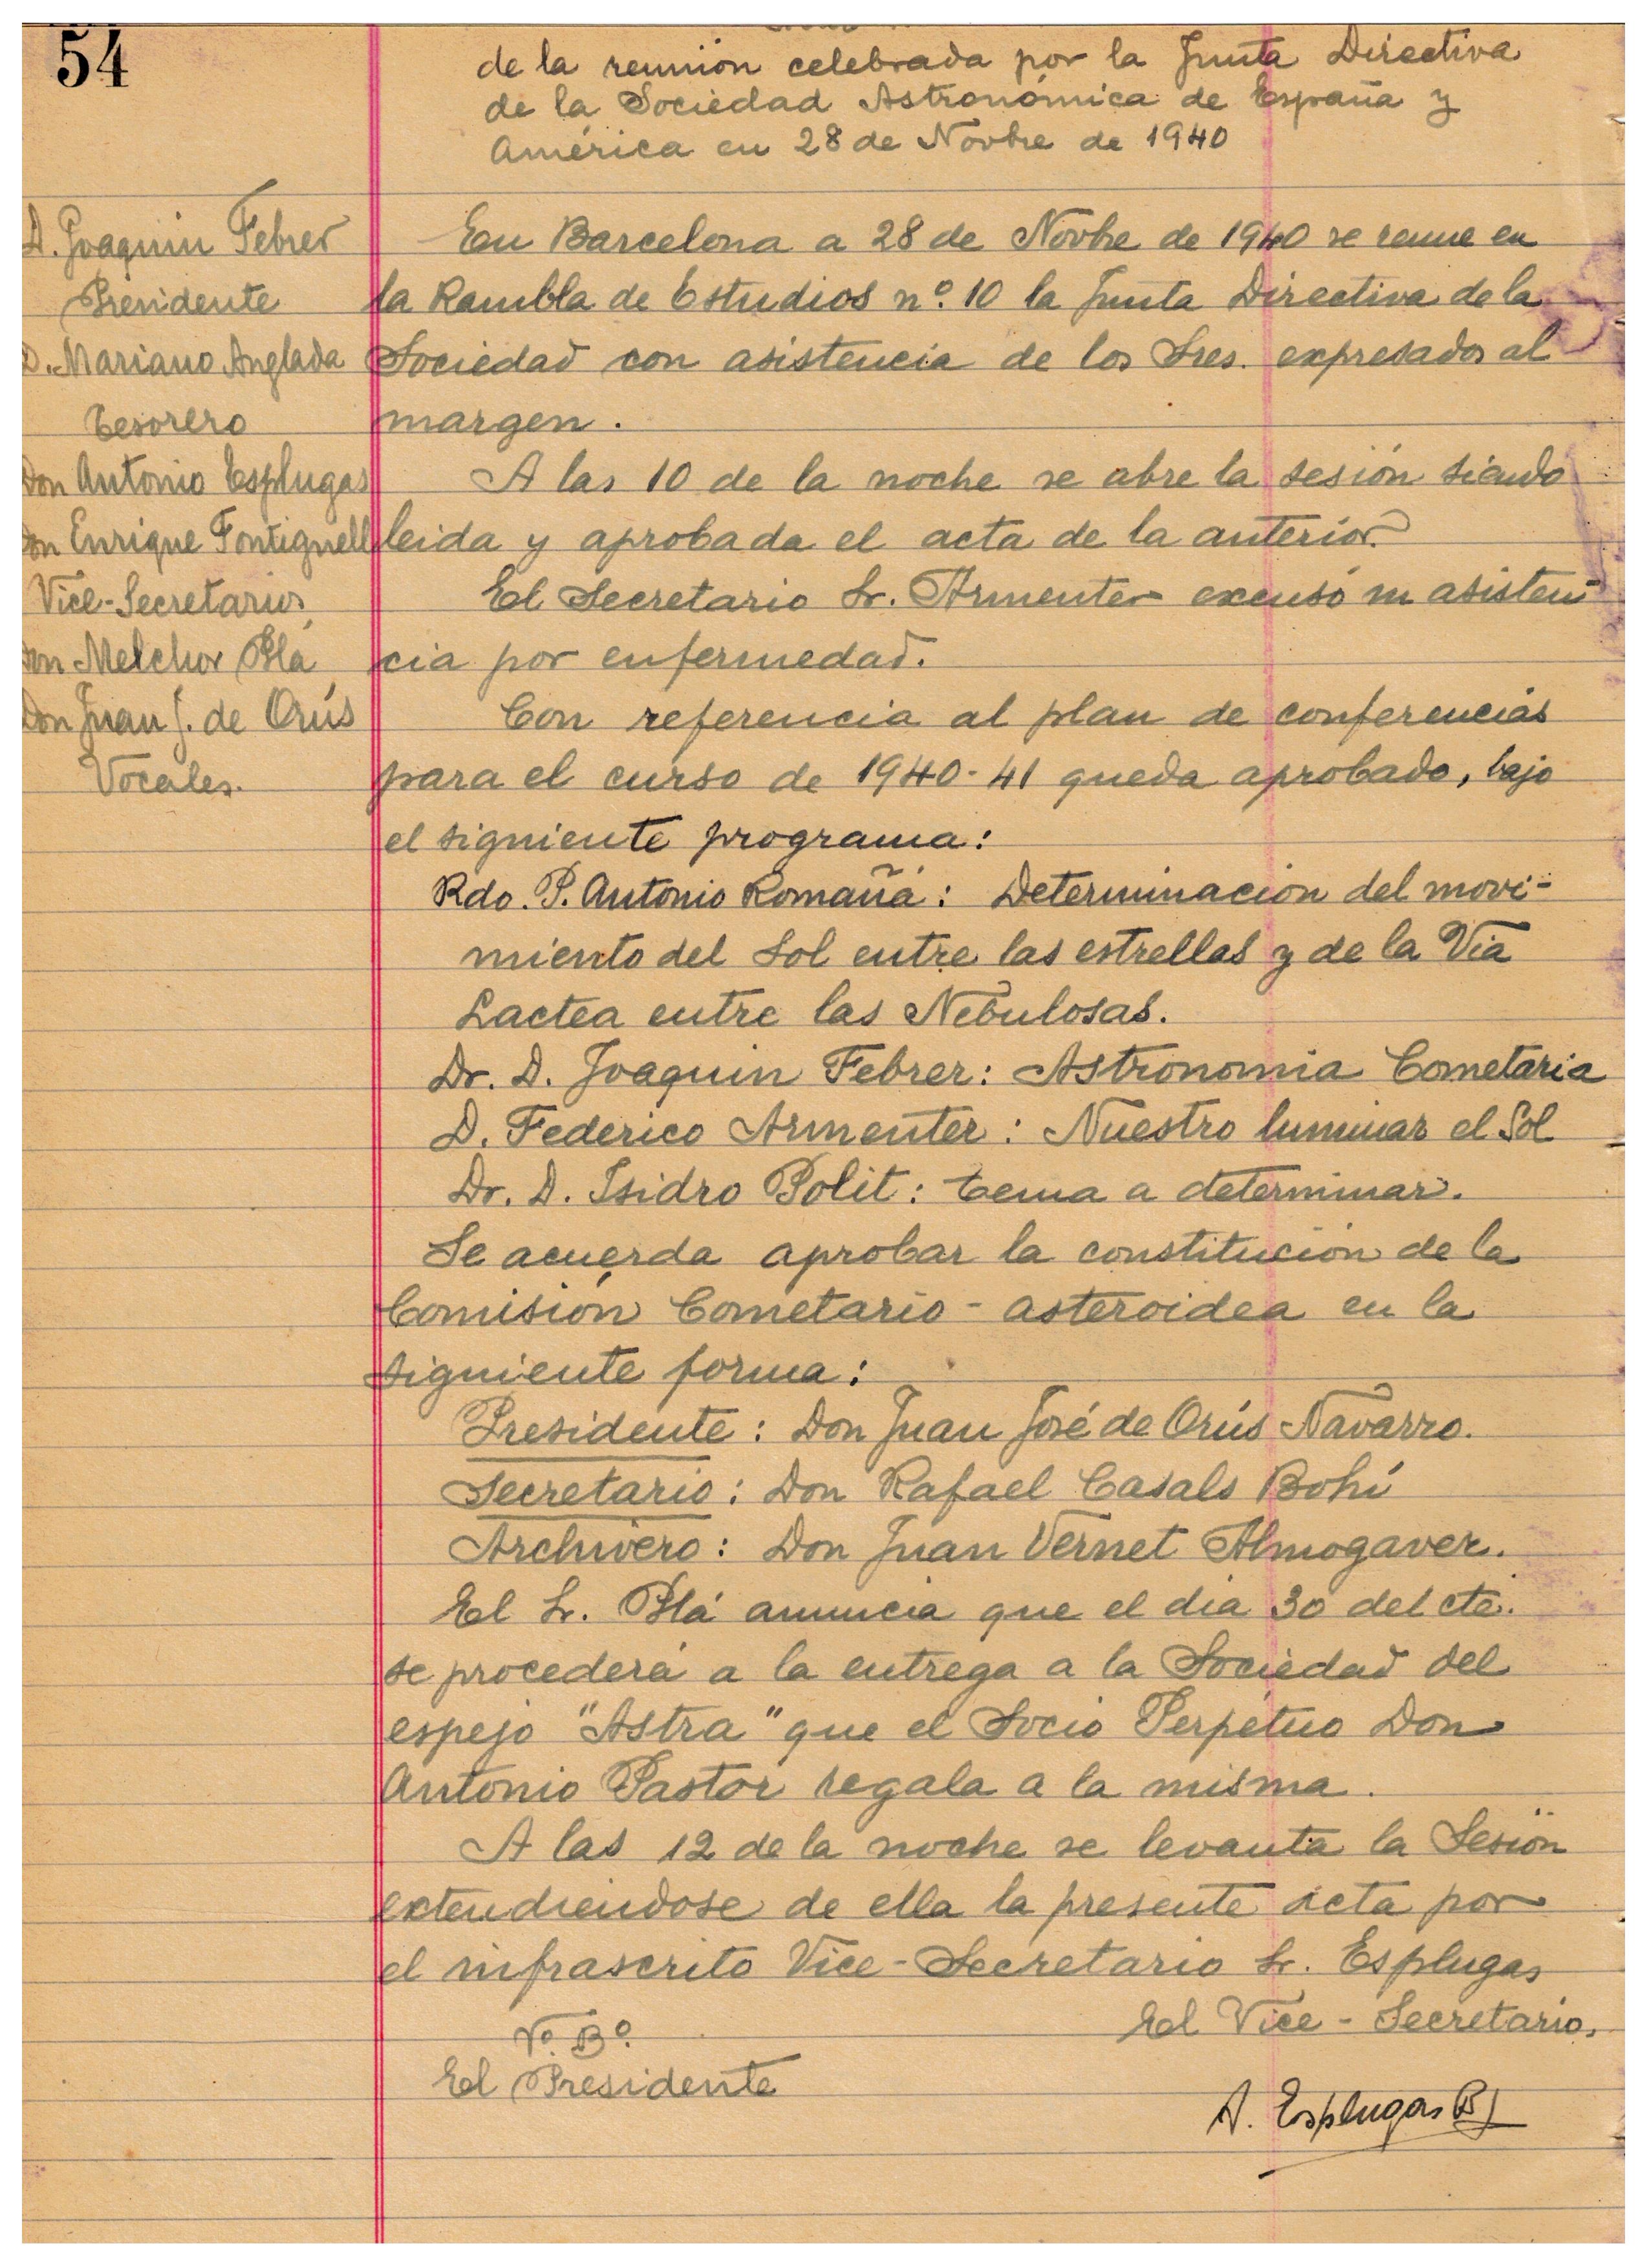 54
de la reunión celebrada por la Junta Directiva
de la Sociedad Astronómica de España y
América en 28 de Novbre de 1940
D. Joaquin Febrer
Presidente
D. Mariano Anglada
Tesorero
Don Antonio Esplugas
Don Enrique Fontignell
Vice-Secretarios,
Don Melchor Plá
Don Juan J. de Orús
Vocales.
En Barcelona a 28 de Novbre de 1940 se reune en
la Rambla de Estudios nº. 10 la Junta Directiva de la
Sociedad con asistencia de los Sres. expresados al
margen.
A las 10 de la noche se abre la sesión siendo
leida y aprobada el acta de la anterior.
El Secretario Sr. Armenter excusó su asisten-
cia por enfermedad.
Con referencia al plan de conferencias
para el curso de 1940-41 queda aprobado, bajo
el siguiente programa:
Rdo. P. Antonio Romañá: Determinación del movi-
miento del Sol entre las estrellas y de la Via
Lactea entre las Nebulosas.
Dr. D. Joaquin Febrer: Astronomia Cometaria
D. Federico Armenter: Nuestro luminar el Sol
Dr. D. Isidro Polit: tema a determinar.
Se acuerda aprobar la constitución de la
Comisión Cometario-asteroidea en la
siguiente forma:
Presidente: Don Juan José de Orús Navarro.
Secretario: Don Rafael Casals Bohí
Archivero: Don Juan Vernet Almogaver.
El Sr. Plá anuncia que el dia 30 del cte.
se procederá a la entrega a la Sociedad del
espejo "Astra" que el Socio Perpétuo Don
Antonio Pastor regala a la misma.
A las 12 de la noche se levanta la Sesión
extendiendose de ella la presente acta por
el infrascrito Vice-Secretario Sr. Esplugas
El Vice-Secretario,
Vº. Bº.
El Presidente
A. Esplugas